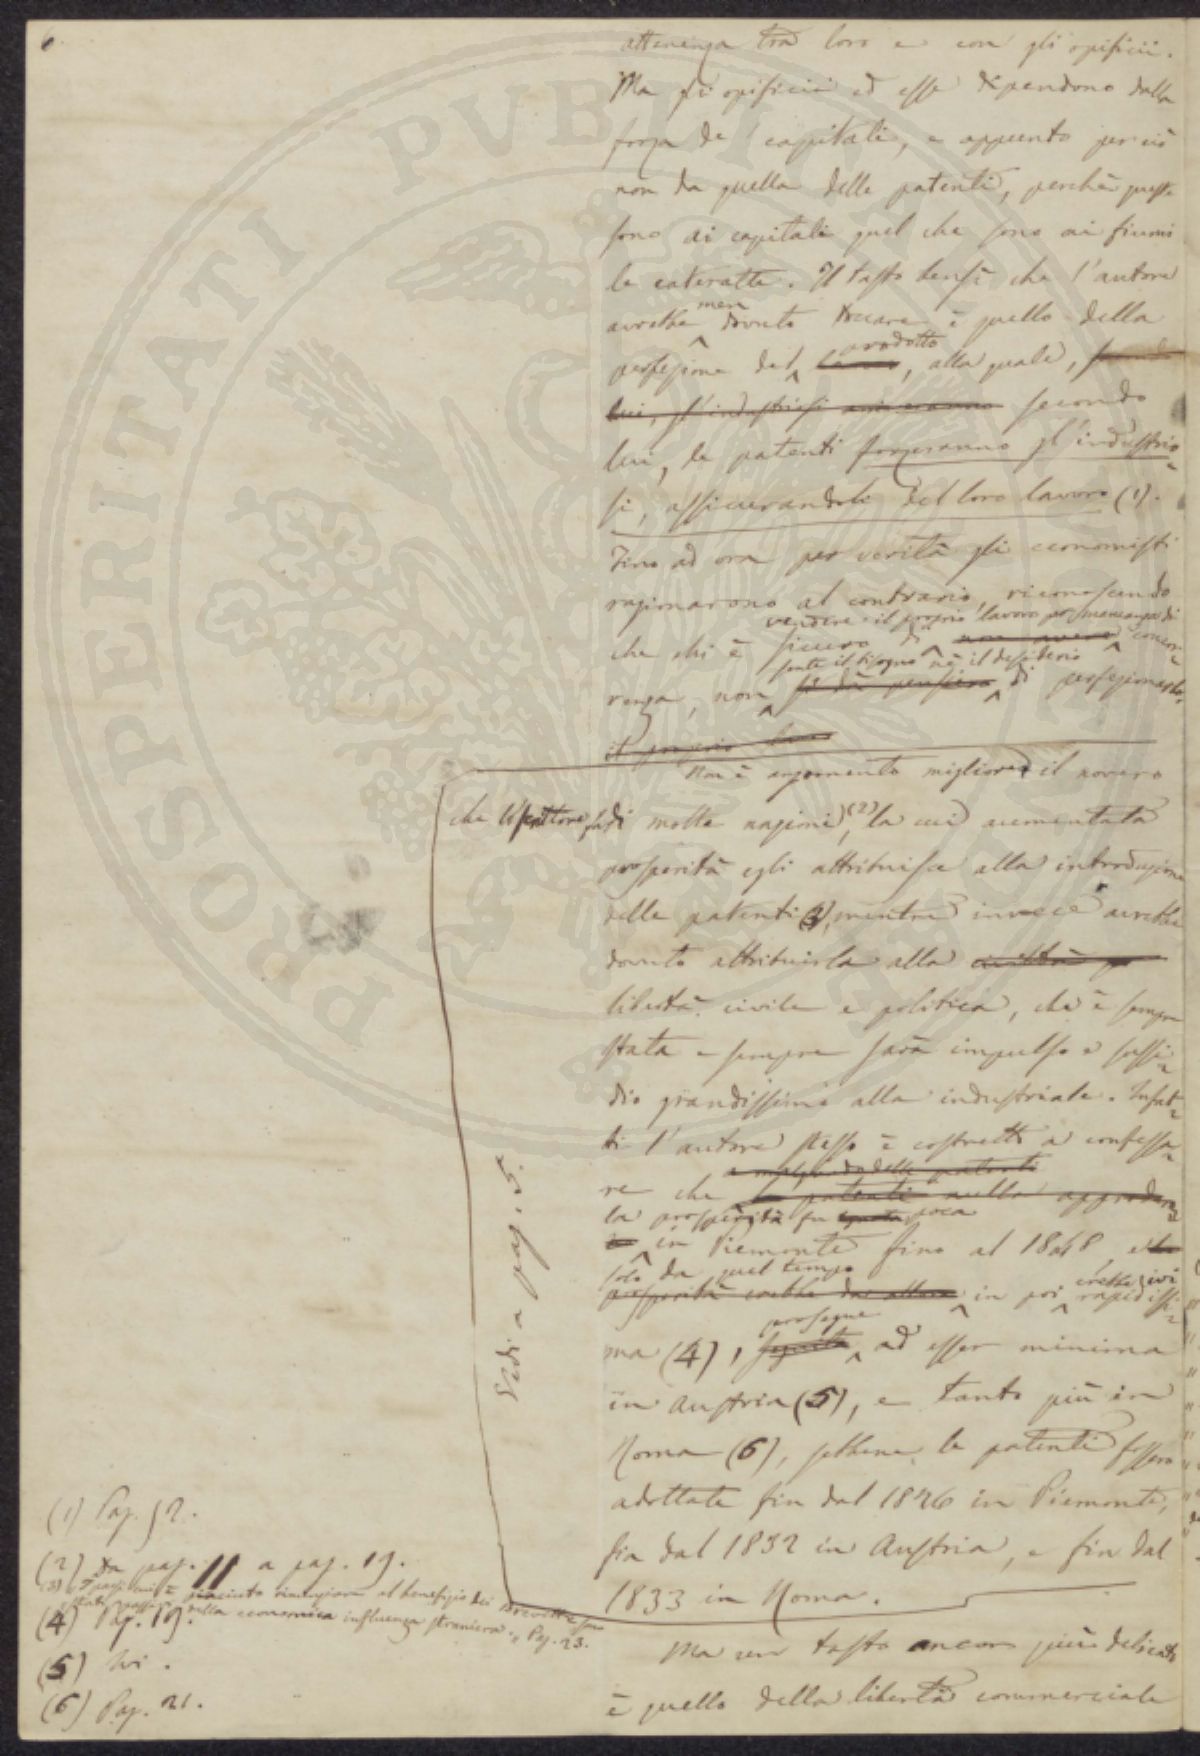 6
attenenza tra loro e con gli opificii.
Ma gli opificii ed esse dipendono dalla
forza de' capitali, e appunto per ciò
non da quella delle patenti, perchè queste
sono ai capitali quel che sono ai fiumi
le cateratte. Il tasto bensì che l'autore
avrebbe men dovuto toccare è quello della
perfezione del prodotto, alla quale,
lui, gl'industriosi secondo
lui, le patenti forzeranno gl'industrio-
si, assicurandoli del loro lavoro (1).
Fino ad ora per verità gli economisti
ragionarono al contrario, riconoscendo
che chi è sicuro di vendere il proprio lavoro per mancanza di concor-
renza, non sente il bisogno nè il desiderio di perfezionarlo.
il proprio
Non è argomento migliore il novero
che l'scrittore fa di molte nazioni (2), la cui aumentata
prosperità egli attribuisce alla introduzione
delle patenti (3), mentre invece avrebbe
dovuto attribuirla alla
libertà civile e politica, che è sempre
stata e sempre sarà impulso e sussi-
dio grandissimi alla industriale. Infat-
ti l'autore stesso è costretto a confessa-
re che a malgrado delle patenti
le patenti nulla
la prosperità fu poca
in Piemonte fino al 1848, e
solo da quel tempo in poi crebbe ivi rapidissi-
ma (4), prosegue ad esser minima
in Austria (5), e tanto più in
Roma (6), sebbene le patenti fossero
adottate fin dal 1826 in Piemonte,
fin dal 1832 in Austria, e fin dal
1833 in Roma.
Ma un tasto ancor più delicato
è quello della libertà commerciale
Vedi a pag. 5.
(1) Pag. 52.
(2) Da pag. 11 a pag. 19.
(3) è piaciuto rinunziare al benefizio dei
della economica influenza straniera. „ Pag. 23.
(4) Pag. 19.
(5) Ivi.
(6) Pag. 21.
PROSPERITATI PUBLICAE